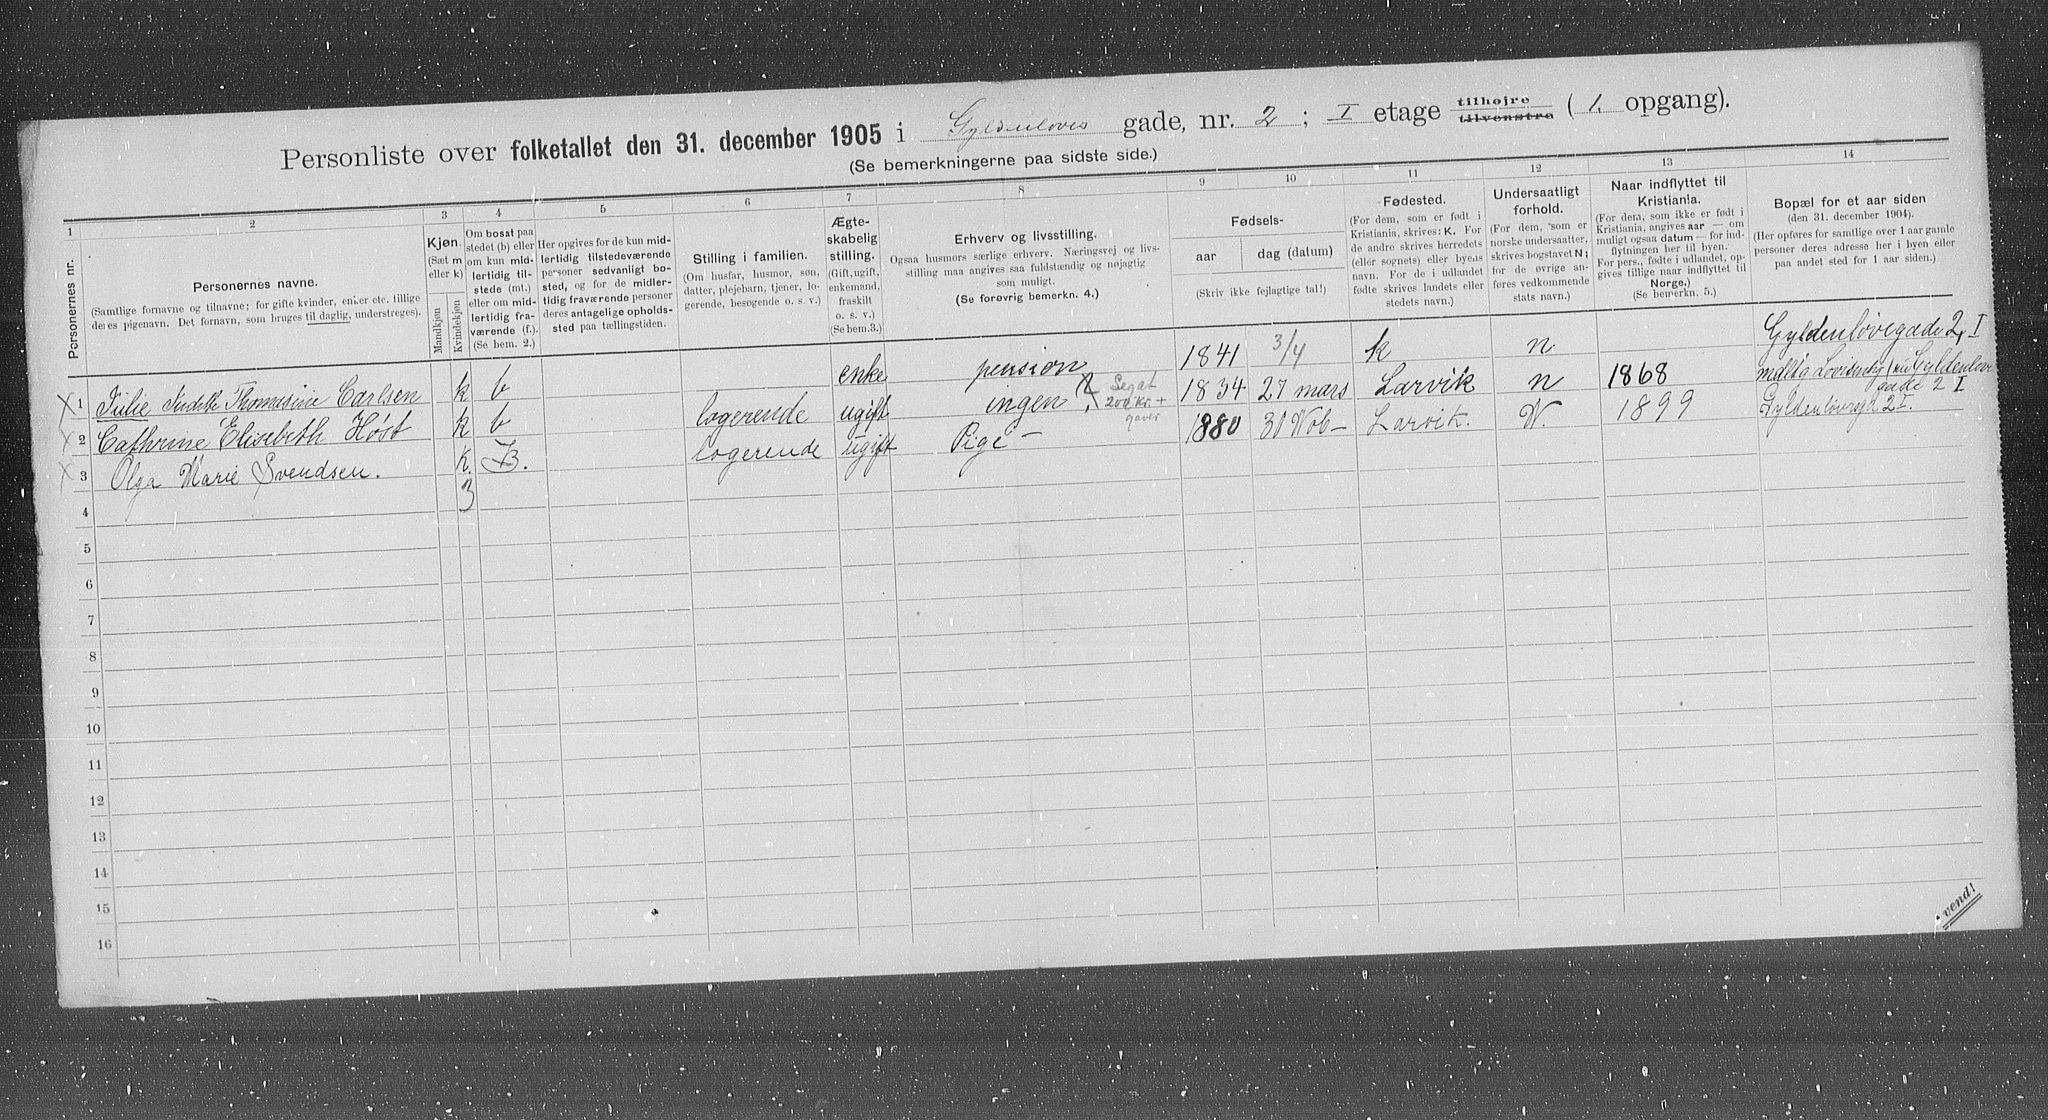 Personliste over folketallet den 31. december 1905 i Gyldenløves gade, nr. 2 ; I etage tilhøjre tilvenstre ( 1. opgang).
(Se bemerkningerne paa sidste side.)
1 2 3 4 5 6 7 8 9 10 11 12 13 14
Personernes nr.
Personernes navne.
(Samtlige fornavne og tilnavne; for gifte kvinder, enker etc. tillige
deres pigenavn. Det fornavn, som bruges til daglig, understreges).
Kjøn.
(Sæt m
eller k)
Mandkjøn
Kvindekjøn
Om bosat paa
stedet (b) eller
om kun mid-
lertidig til-
stede (mt.)
eller om mid-
lertidig fra-
værende (f.).
(Se bem. 2.)
Her opgives for de kun mid-
lertidig tilstedeværende
personer sedvanligt bo-
sted, og for de midler-
tidig fraværende personer
deres antagelige opholds-
sted paa tællingstiden.
Stilling i familien.
(Om husfar, husmor, søn,
datter, plejebarn, tjener, lo-
gerende, besøgende o. s. v.)
Ægte-
skabelig
stilling.
(Gift, ugift,
enkemand,
fraskilt
o. s. v.)
(Se bem.3.)
Erhverv og livsstilling.
Ogsaa husmors særlige erhverv. Næringsvej og livs-
stilling maa angives saa fuldstændig og nøjagtig
som muligt.
(Se forøvrig bemerkn. 4.)
Fødsels-
aar
dag (datum)
(Skriv ikke fejlagtige tal!)
Fødested.
(For dem, som er født i
Kristiania, skrives: K. For
de andre skrives herredets
(eller sognets) eller byens
navn. For de i udlandet
fødte skrives landets eller
stedets navn.)
Undersaatligt
forhold.
(For dem, som er
norske undersaatter,
skrives bogstavet N;
for de øvrige an-
føres vedkommende
stats navn.)
Naar indflyttet til
Kristiania.
(For dem, som ikke er født i
Kristiania, angives aar — om
muligt ogsaa datum — for ind-
flytningen her til byen.
For pers., født i udlandet, op-
gives tillige naar indflyttet til
Norge.)
(Se bemerkn. 5.)
Bopæl for et aar siden
(den 31. december 1904).
(Her opføres for samtlige over 1 aar gamle
personer deres adresse her i byen eller
paa andet sted for 1 aar siden.)
1 Julie Thomasine Carlsen k b enke pension 1841 3/4 k n Gyldenløvegade 2, I
2 Cathrine Elisebeth Høst k b logerende ugift ingen Legat 200 Kr. + gaver 1834 27 mars Larvik n 1868 Gyldenløve gade 2 I
3 Olga Marie Svendsen. K. B. logerende ugift Pige — 1880 30 Nob — Larvik. N. 1899 2 I.
3
4
5
6
7
8
9
10
11
12
13
14
15
16
vend!